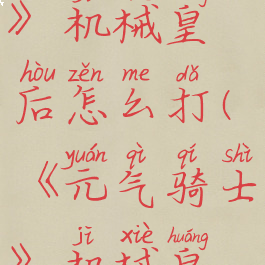 》机械皇
hòu zěn me dǎ
后怎么打(
yuán qì qí shì
《元气骑士
jī xiè huáng
》机械皇